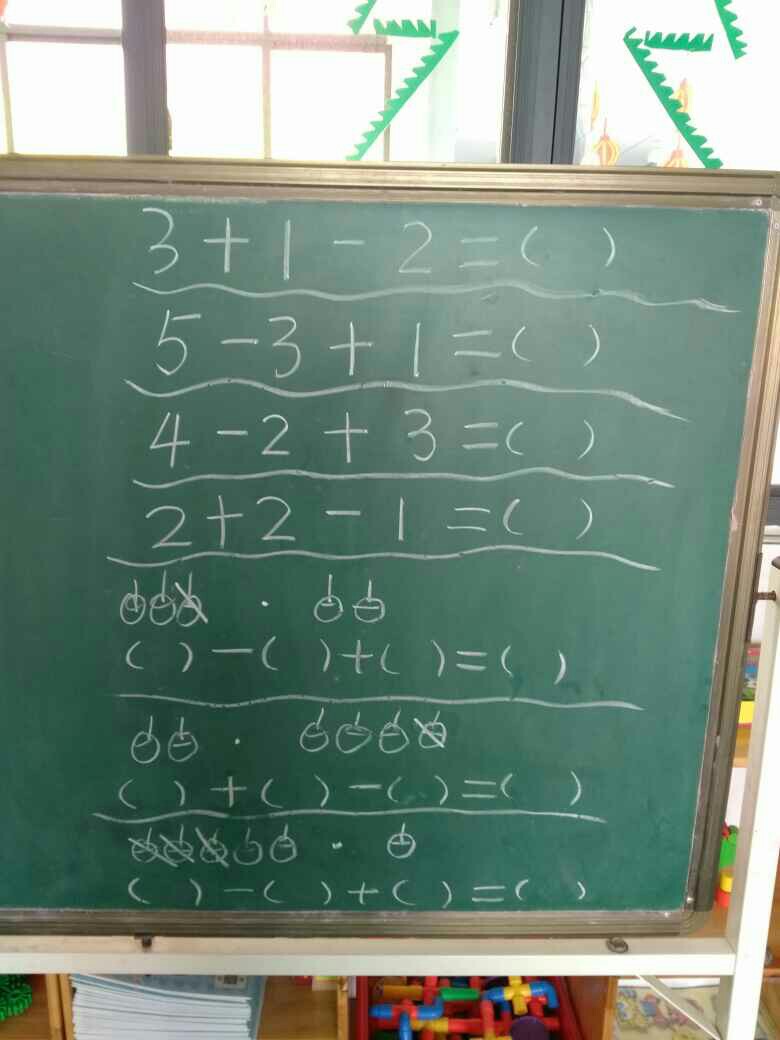 3+1-2=( )
5-3+1=( )
4-2+3=( )
2+2-1=( )
( )-( )+( )=( )
( )+( )-( )=( )
( )-( )+( )=( )